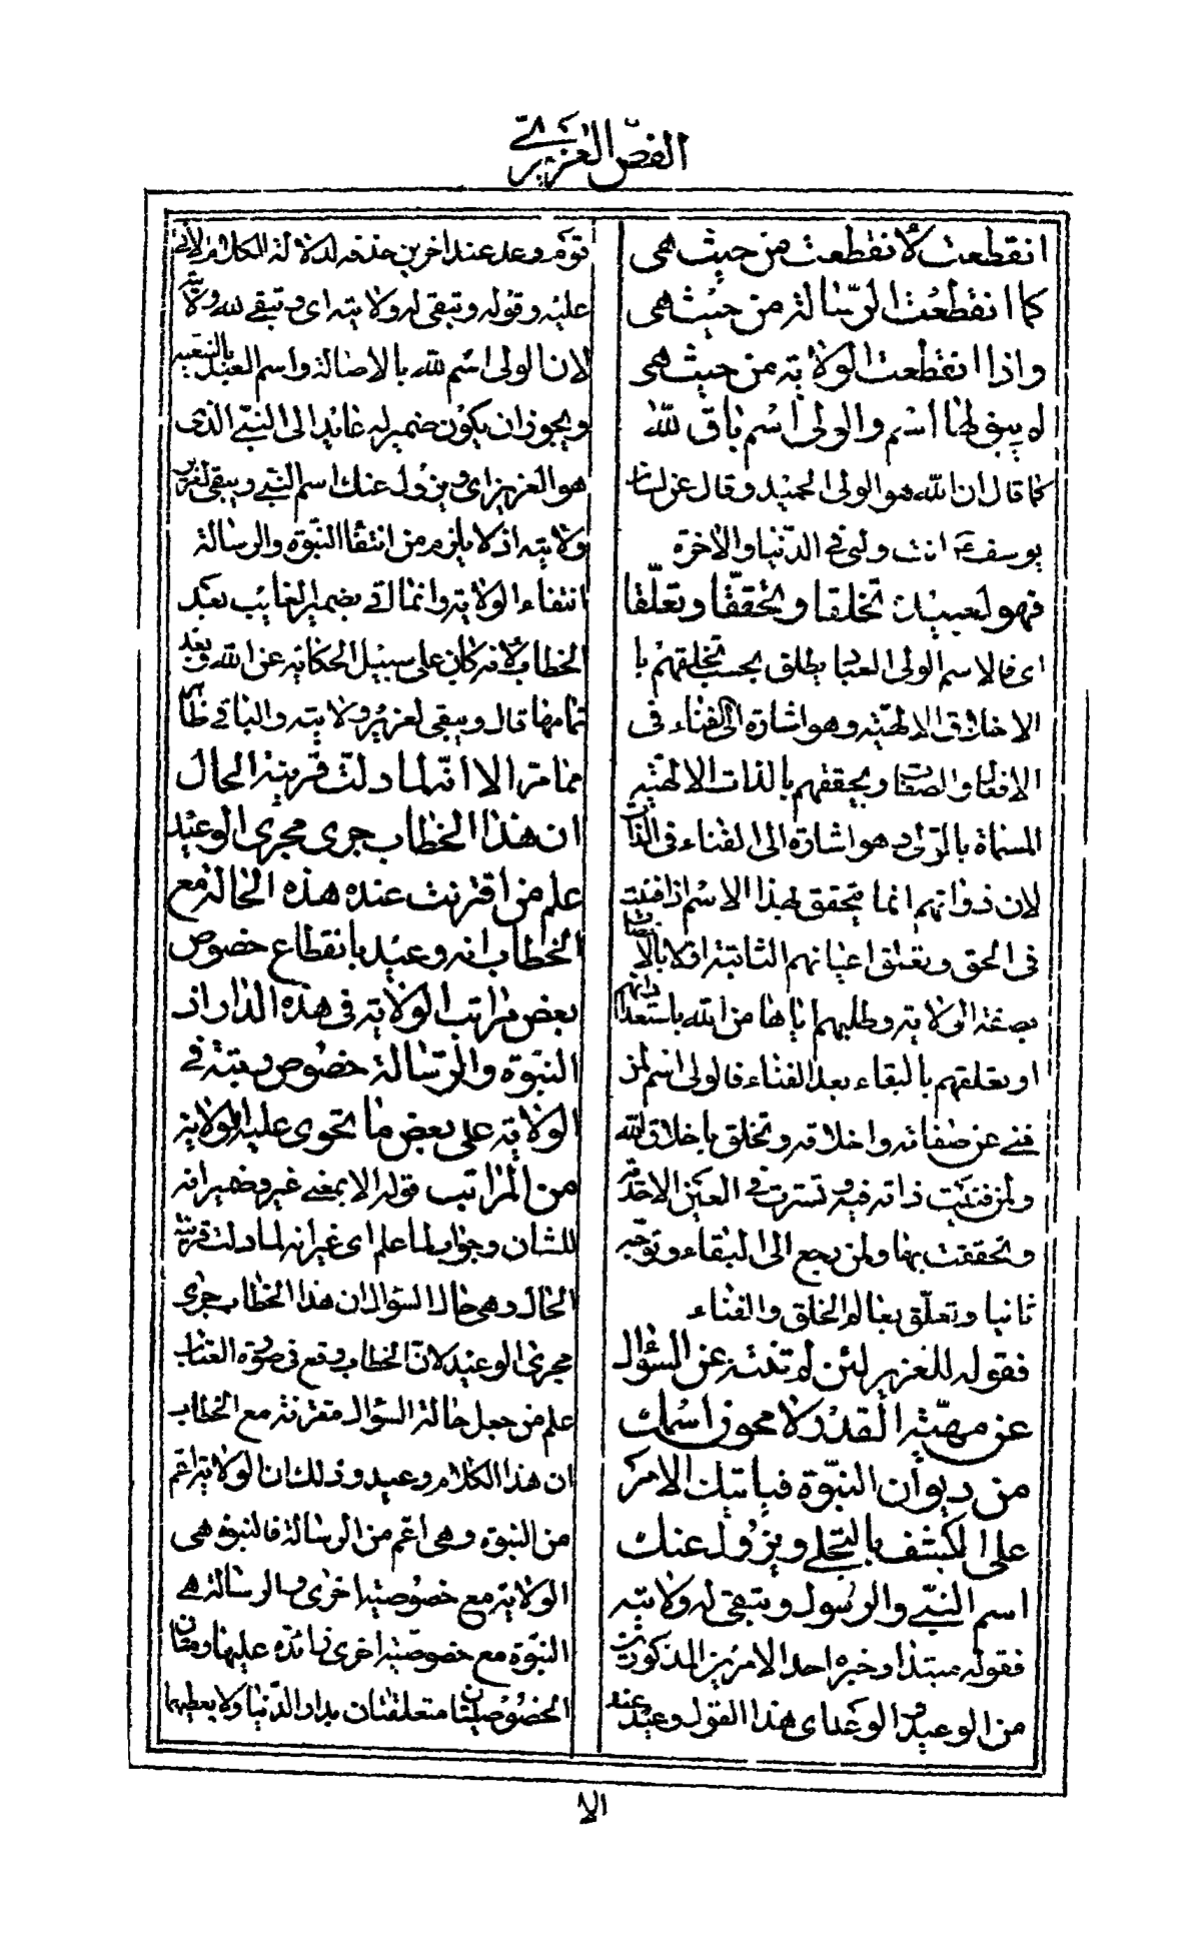 الفصّ العزيرىّ
انقطعت لانقطعت من حيث هى
كما انقطعت الرّسالة من حيث هى
واذا انقطعت الولاية من حيث هى
لم يبق لها اسم والولى اسم باق للّه
كما قال ان الله هو الولى الحميد وقال عن لسان
يوسف ع انت وليى فى الدّنيا والاخرة
فهو لعبيده تخلقا وتحققّا وتعلّقا
اى فالاسم الولى للعباد يطلق بحسب تخلقهم با
الاخلاق الالهيّة وهو اشارة الى الفناء فى
الافعال والصفات وبحققهم بالذات الالهيّة
المسماة بالولى وهو اشارة الى الفناء فى الذات
لان ذواتهم انما يتحقق بهذا الاسم اذا فنيت
فى الحق وتعلق اعيانهم الثابتة اولا بالاتصاف
بصفة الولاية وطلبهم اياها من الله باستعداداتهم
او بعلقهم بالبقاء بعد الفناء فالولى اسم لمن
فنى عن صفاته واخلاقه وتخلق باخلاق الله
ولمن فنيت ذاته فيه وتسترت فى العين الاحديّة
وتحققت بها ولمن رجع الى البقاء وتوجّه
ثانيا وتعلّق بعالم الخلق والفناء
فقوله للعزير لئن لم تنته عن السّؤال
عن مهيّة القدر لامحون اسمك
من ديوان النبّوة فياتيك الامر
على الكشف بالتجلى ويزول عنك
اسم النبّى والرسول وتبقى له ولايته
فقوله مبتدا وخبره احد الامرين المذكورين
من الوعيد والوعد اى هذا القول وعيد عند
قوم ووعد عند اخرين حذفه لدلالة الكلام الاتى
عليه وقوله وتبقى له ولايته اى وتبقى لله ولايته
لان الولى اسم للّه بالاصالة واسم العبد بالتبعيّة
ويجوز ان يكون ضمير له عائدا الى النبّى الذى
هو العزير اى ويزول عنك اسم النبى ويبقى لعزير
ولايته اذ لا يلزم من انتفاء النبّوة والرسالة
انتفاء الولاية وانما اتى بضمير الغايب بعد
الخطاب لانه كان على سبيل الحكاية عن الله وبعد
تمامها قال ويبقى لعزير ولايته والباقى ظاهر
مما مرّ الا انّه لما دلت قرينة الحال
ان هذا الخطاب جرى مجرى الوعيد
علم من اقترنت عنده هذه الحالة مع
الخطاب انه وعيد بانقطاع خصوص
بعض مراتب الولاية فى هذه الدار اذ
النبّوة والرّسالة خصوص رتبة فى
الولاية على بعض ما تحوى عليه الولاية
من المراتب قوله الا بمعنى غير وضمير انه
للشان وجواب لما علم اى غير انه لما دلت قرينة
الحال وهى حال السؤال ان هذا الخطاب جرى
مجرى الوعيد لانّ الخطاب وقع فى صورة العتاب
علم من جعل حالة السؤال مقترنة مع الخطاب
ان هذا الكلام وعيد وذلك ان الولاية اعّم
من النبوة وهى اعّم من الرسالة فالنبوة هى
الولاية مع خصوصيّة اخرى والرسالة هى
النبّوة مع خصوصيّة اخرى زائدة عليها وهاتان
الخصوصيّتان متعلقتان بدار الدّنيا ولا يعطيهما
الا